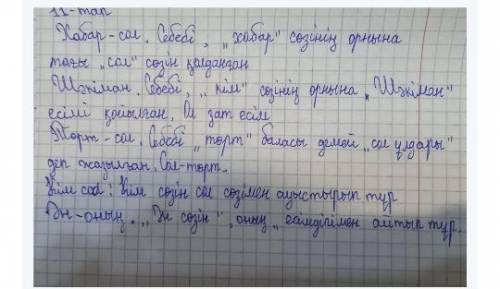 11-тап
Хабар-сол. Себебі, "хабар" сөзінің орнына
тағы "сол" сөзін қолданған
Шәкіман. Себебі, "кім" сөзінің орнына "Шәкіман"
есімі қойылған. Ол зат есім
Төрт-сол. Себебі "төрт" баласы демей "сол ұлдары"
деп жазылған. Сол-төрт.
Кім сол: Кім сөзін сол сөзімен ауыстырып тұр
Ән-оның. "Ән сөзін", оның "есімдігімен айтып тұр.